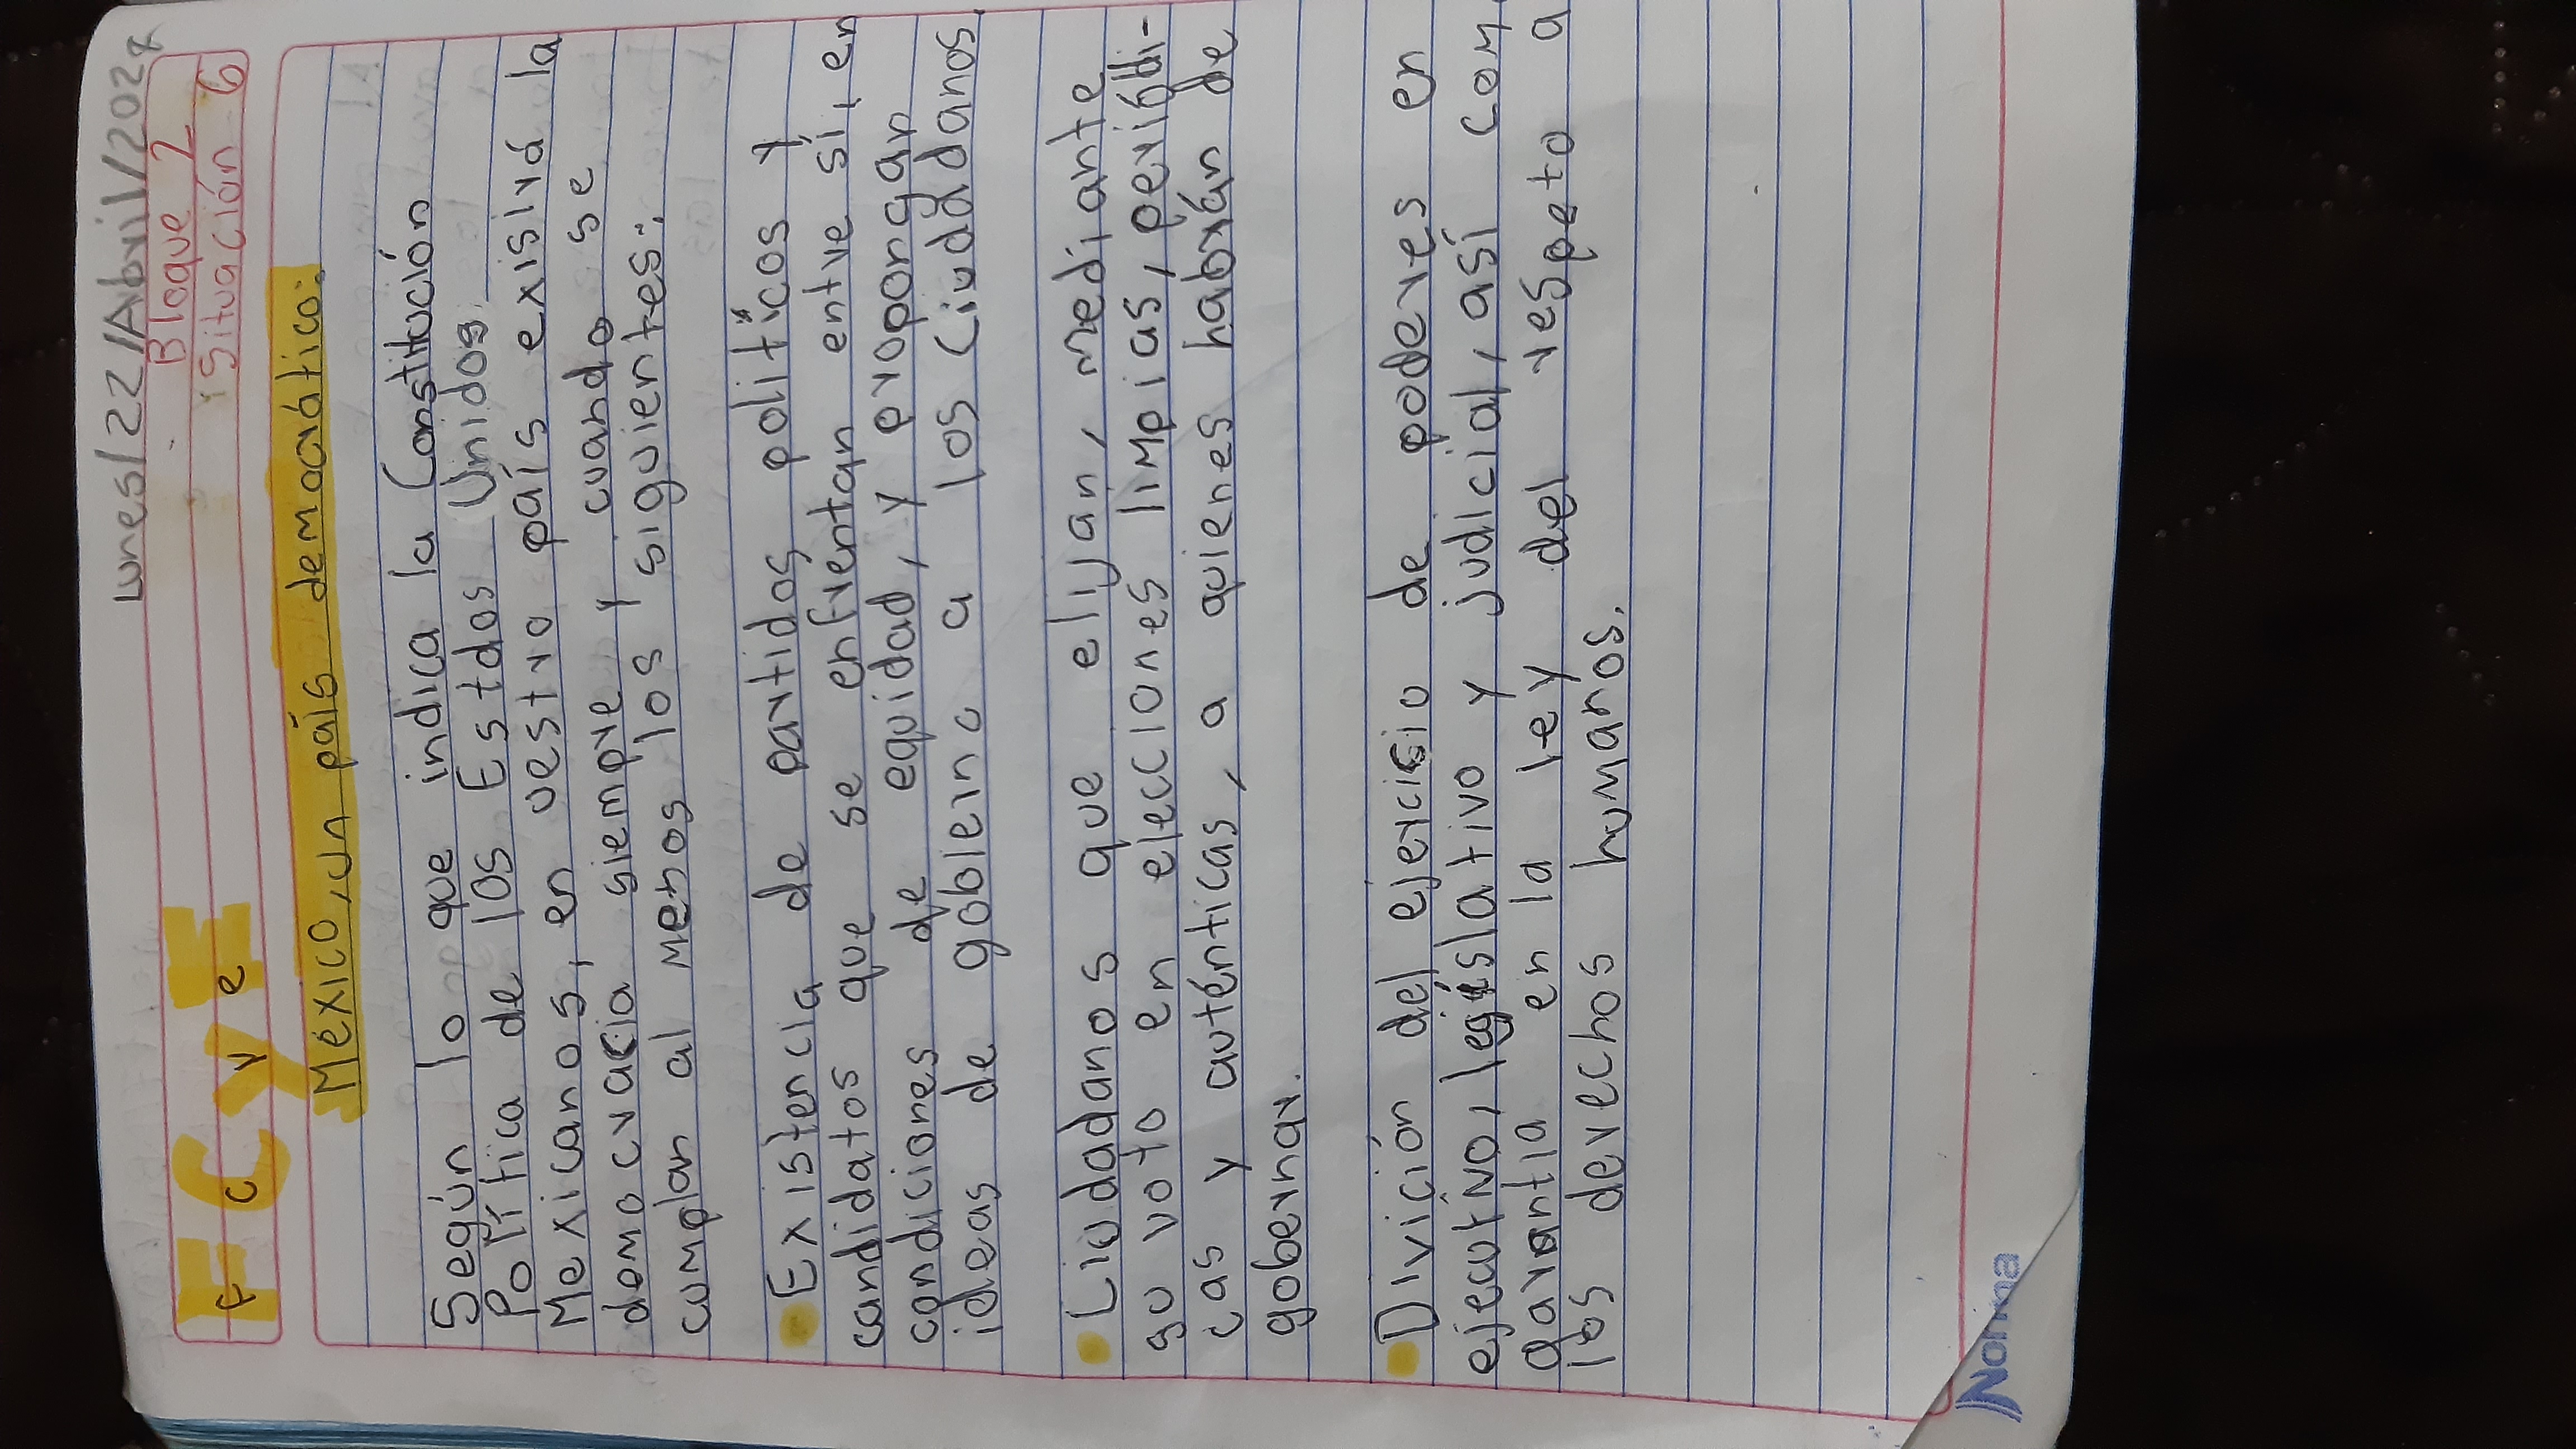 Lunes/22/Abril/202
Bloque 2
F C y E
Situación 6
México, un país democrático:
Según lo que indica la Constitución
Política de los Estdos Unidos
Mexicanos, en uestro país exisirá la
democracia siempre y cuando se
cumplan al menos los siguientes:
• Existencia de partidos politicos y
candidatos que se enfrentan entre sí, en
condiciones de equidad, y propongan
ideas de gobierno a los Ciudadanos.
• Ciudadanos que elijan, mediante
su voto en elecciones limpias, periódi-
cas y auténticas, a quienes habrán de
gobernar.
• Divición del ejercicio de poderes en
ejecutivo, legislativo y judicial, así com
garantía en la ley del respeto a
los derechos humanos.
Norma